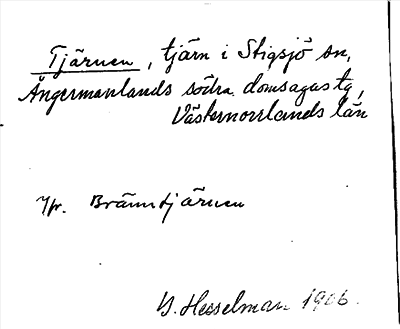 Tjärnen, tjärn i Stigsjö sn,
Ångermanlands södra domsagas tg,
Västernorrlands län
Jfr. Bränntjärnen
B. Hesselman 1906.